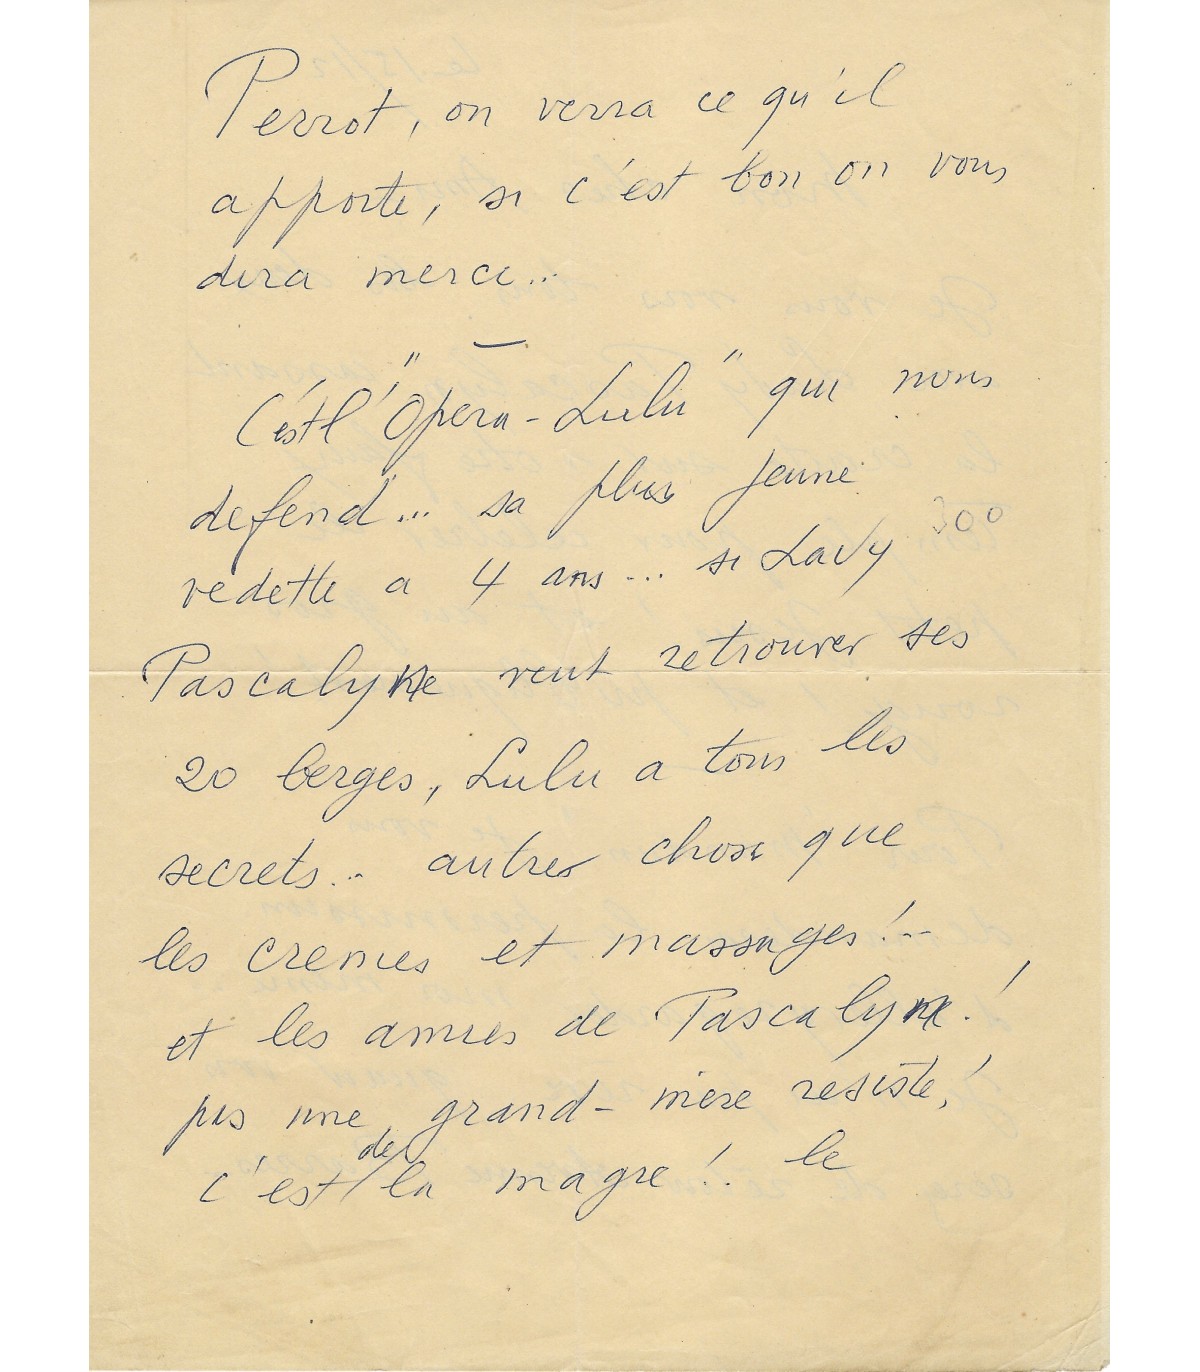 Perrot, on verra ce qu'il
apporte, si c'est bon on vous
dira merci...
C'est l'"Opera-Lulu" qui nous
defend... sa plus jeune
vedette a 4 ans... si Lady
300
Pascalyne veut retrouver ses
20 berges, Lulu a tous les
secrets... autres chose que
les cremes et massages!..
et les amies de Pascalyne!
pas une grand-mère resiste!
c'est de la magie!. le